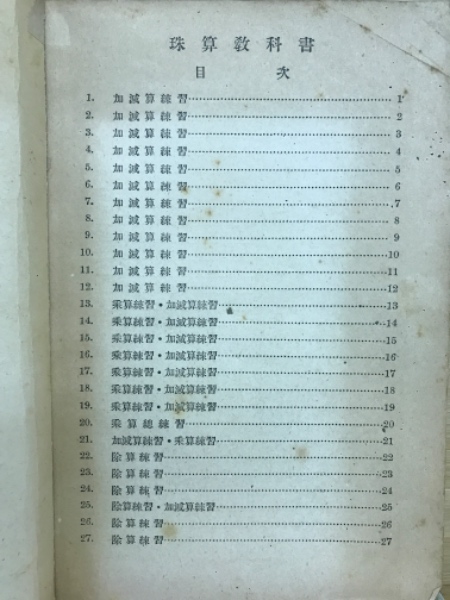 珠算教科書
目次
1. 加減算練習 1
2. 加減算練習 2
3. 加減算練習 3
4. 加減算練習 4
5. 加減算練習 5
6. 加減算練習 6
7. 加減算練習 7
8. 加減算練習 8
9. 加減算練習 9
10. 加減算練習 10
11. 加減算練習 11
12. 加減算練習 12
13. 乘算練習・加減算練習 13
14. 乘算練習・加減算練習 14
15. 乘算練習・加減算練習 15
16. 乘算練習・加減算練習 16
17. 乘算練習・加減算練習 17
18. 乘算練習・加減算練習 18
19. 乘算練習・加減算練習 19
20. 乘算總練習 20
21. 加減算練習・乘算練習 21
22. 除算練習 22
23. 除算練習 23
24. 除算練習 24
25. 除算練習・加減算練習 25
26. 除算練習 26
27. 除算練習 27